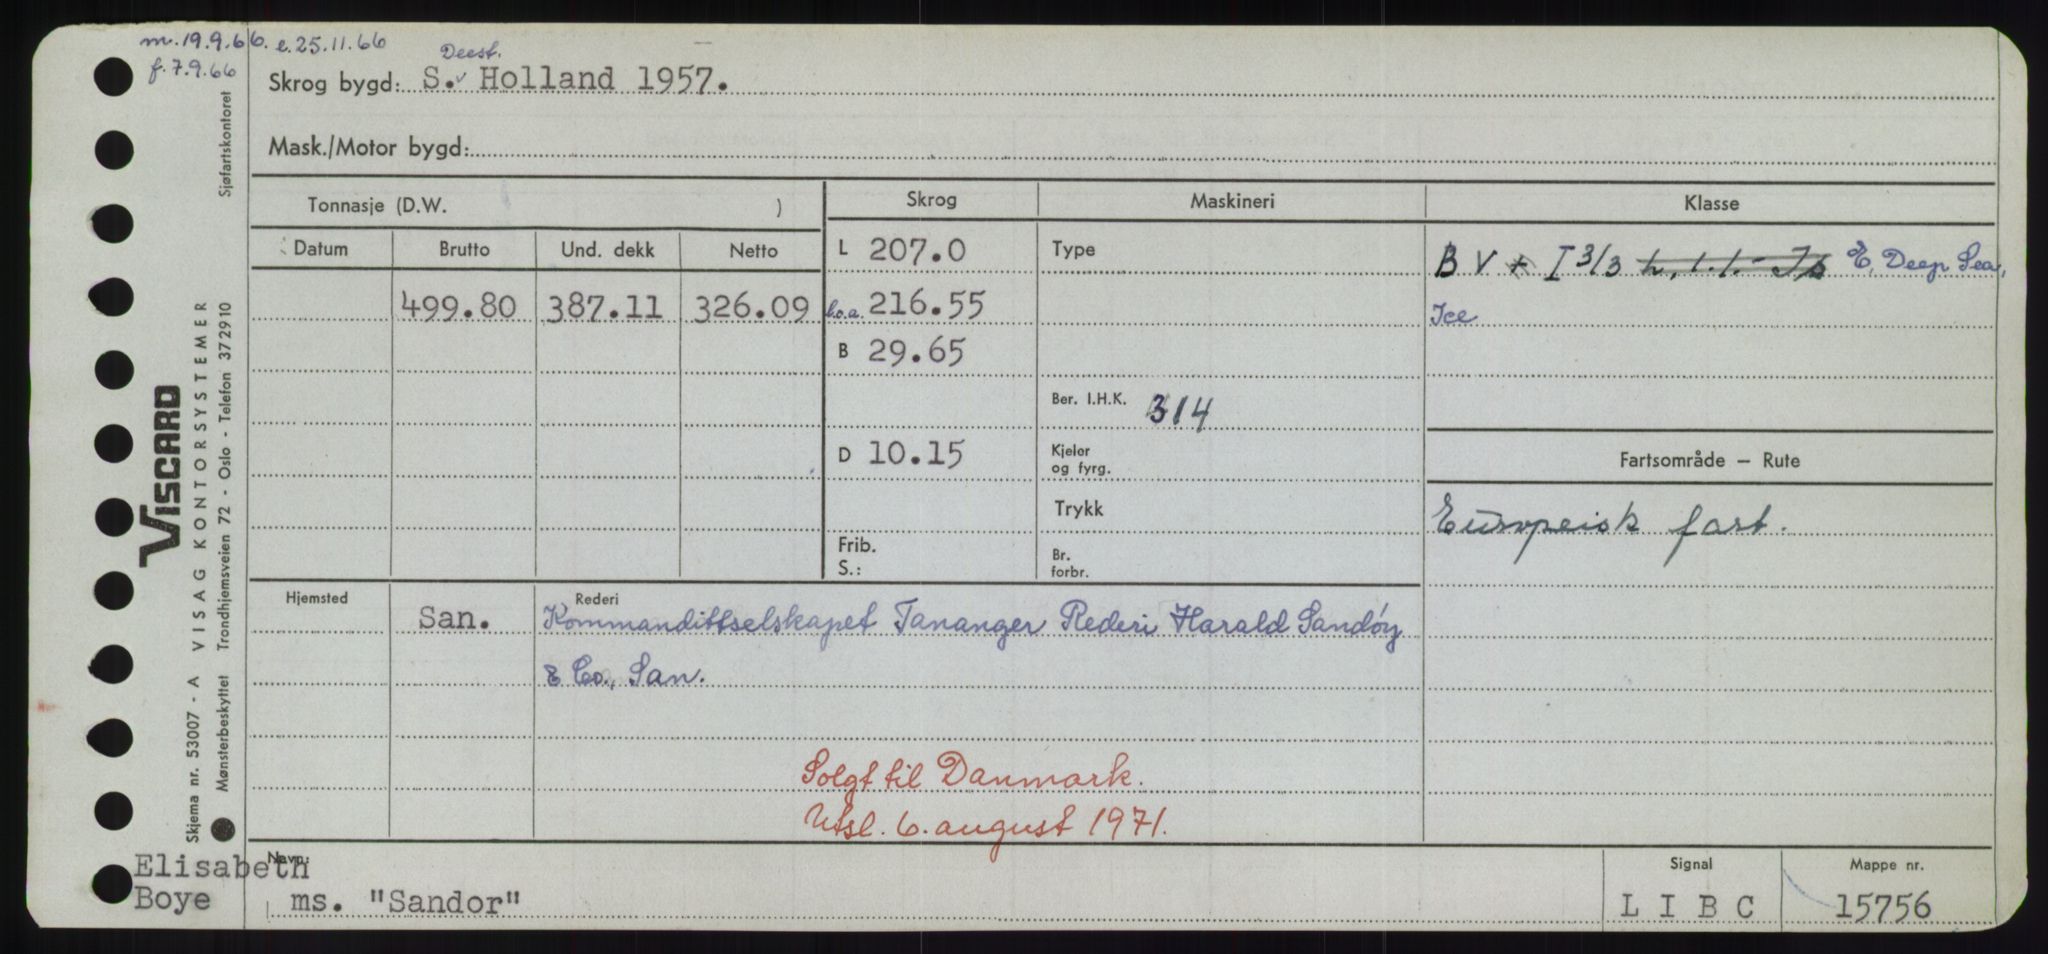 m. 19.9.66. e. 25.11.66
f. 7.9.66
Deest.
Skrog bygd: S.v Holland 1957.
Mask./Motor bygd:
Tonnasje (D.W. )
Skrog
Maskineri
Klasse
Datum Brutto Und. dekk Netto
499.80 387.11 326.09
L 207.0
l.o.a. 216.55
B 29.65
D 10.15
Frib.
S.:
Type
Ber. I.H.K. 314
Kjeler
og fyrg.
Trykk
Br.
forbr.
B V + I 3/3 Æ, Deep Sea,
Ice
Fartsområde — Rute
Europeisk fart.
Hjemsted San.
Rederi
Kommandittselskapet Tananger Rederi Harald Sandøy
& Co., San.
Solgt til Danmark.
Utsl. 6. august 1971.
Navn:
Elisabeth
Boye
ms. "Sandor"
Signal
L I B C
Mappe nr.
15756
VISCARD
Skjema nr. 53007 - A VISAG KONTORSYSTEMER
Mønsterbeskyttet Trondhjemsveien 72 - Oslo - Telefon 37 29 10 Sjøfartskontoret